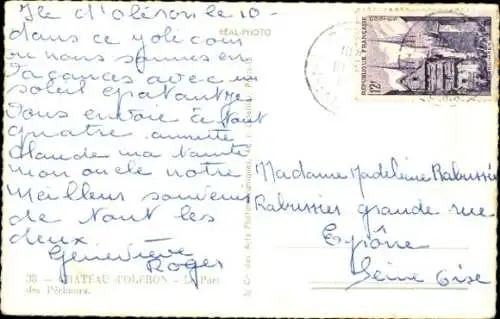 Ile d'oléron le 10-
dans ce joli coin
ou nous sommes en
vacances avec un
soleil épatant je
vous envoie à tout
quatre annette
Claude ma Tante
mon oncle notre
meilleur souvenir
de tout les
deux
Geneviève
Roger
38 - CHATEAU D'OLÉRON - Le Port
des Pêcheurs.
REAL-PHOTO
RÉPUBLIQUE FRANÇAISE
12F
Madame Madeleine Rabussier
Rabussier grande rue
Seine Oise